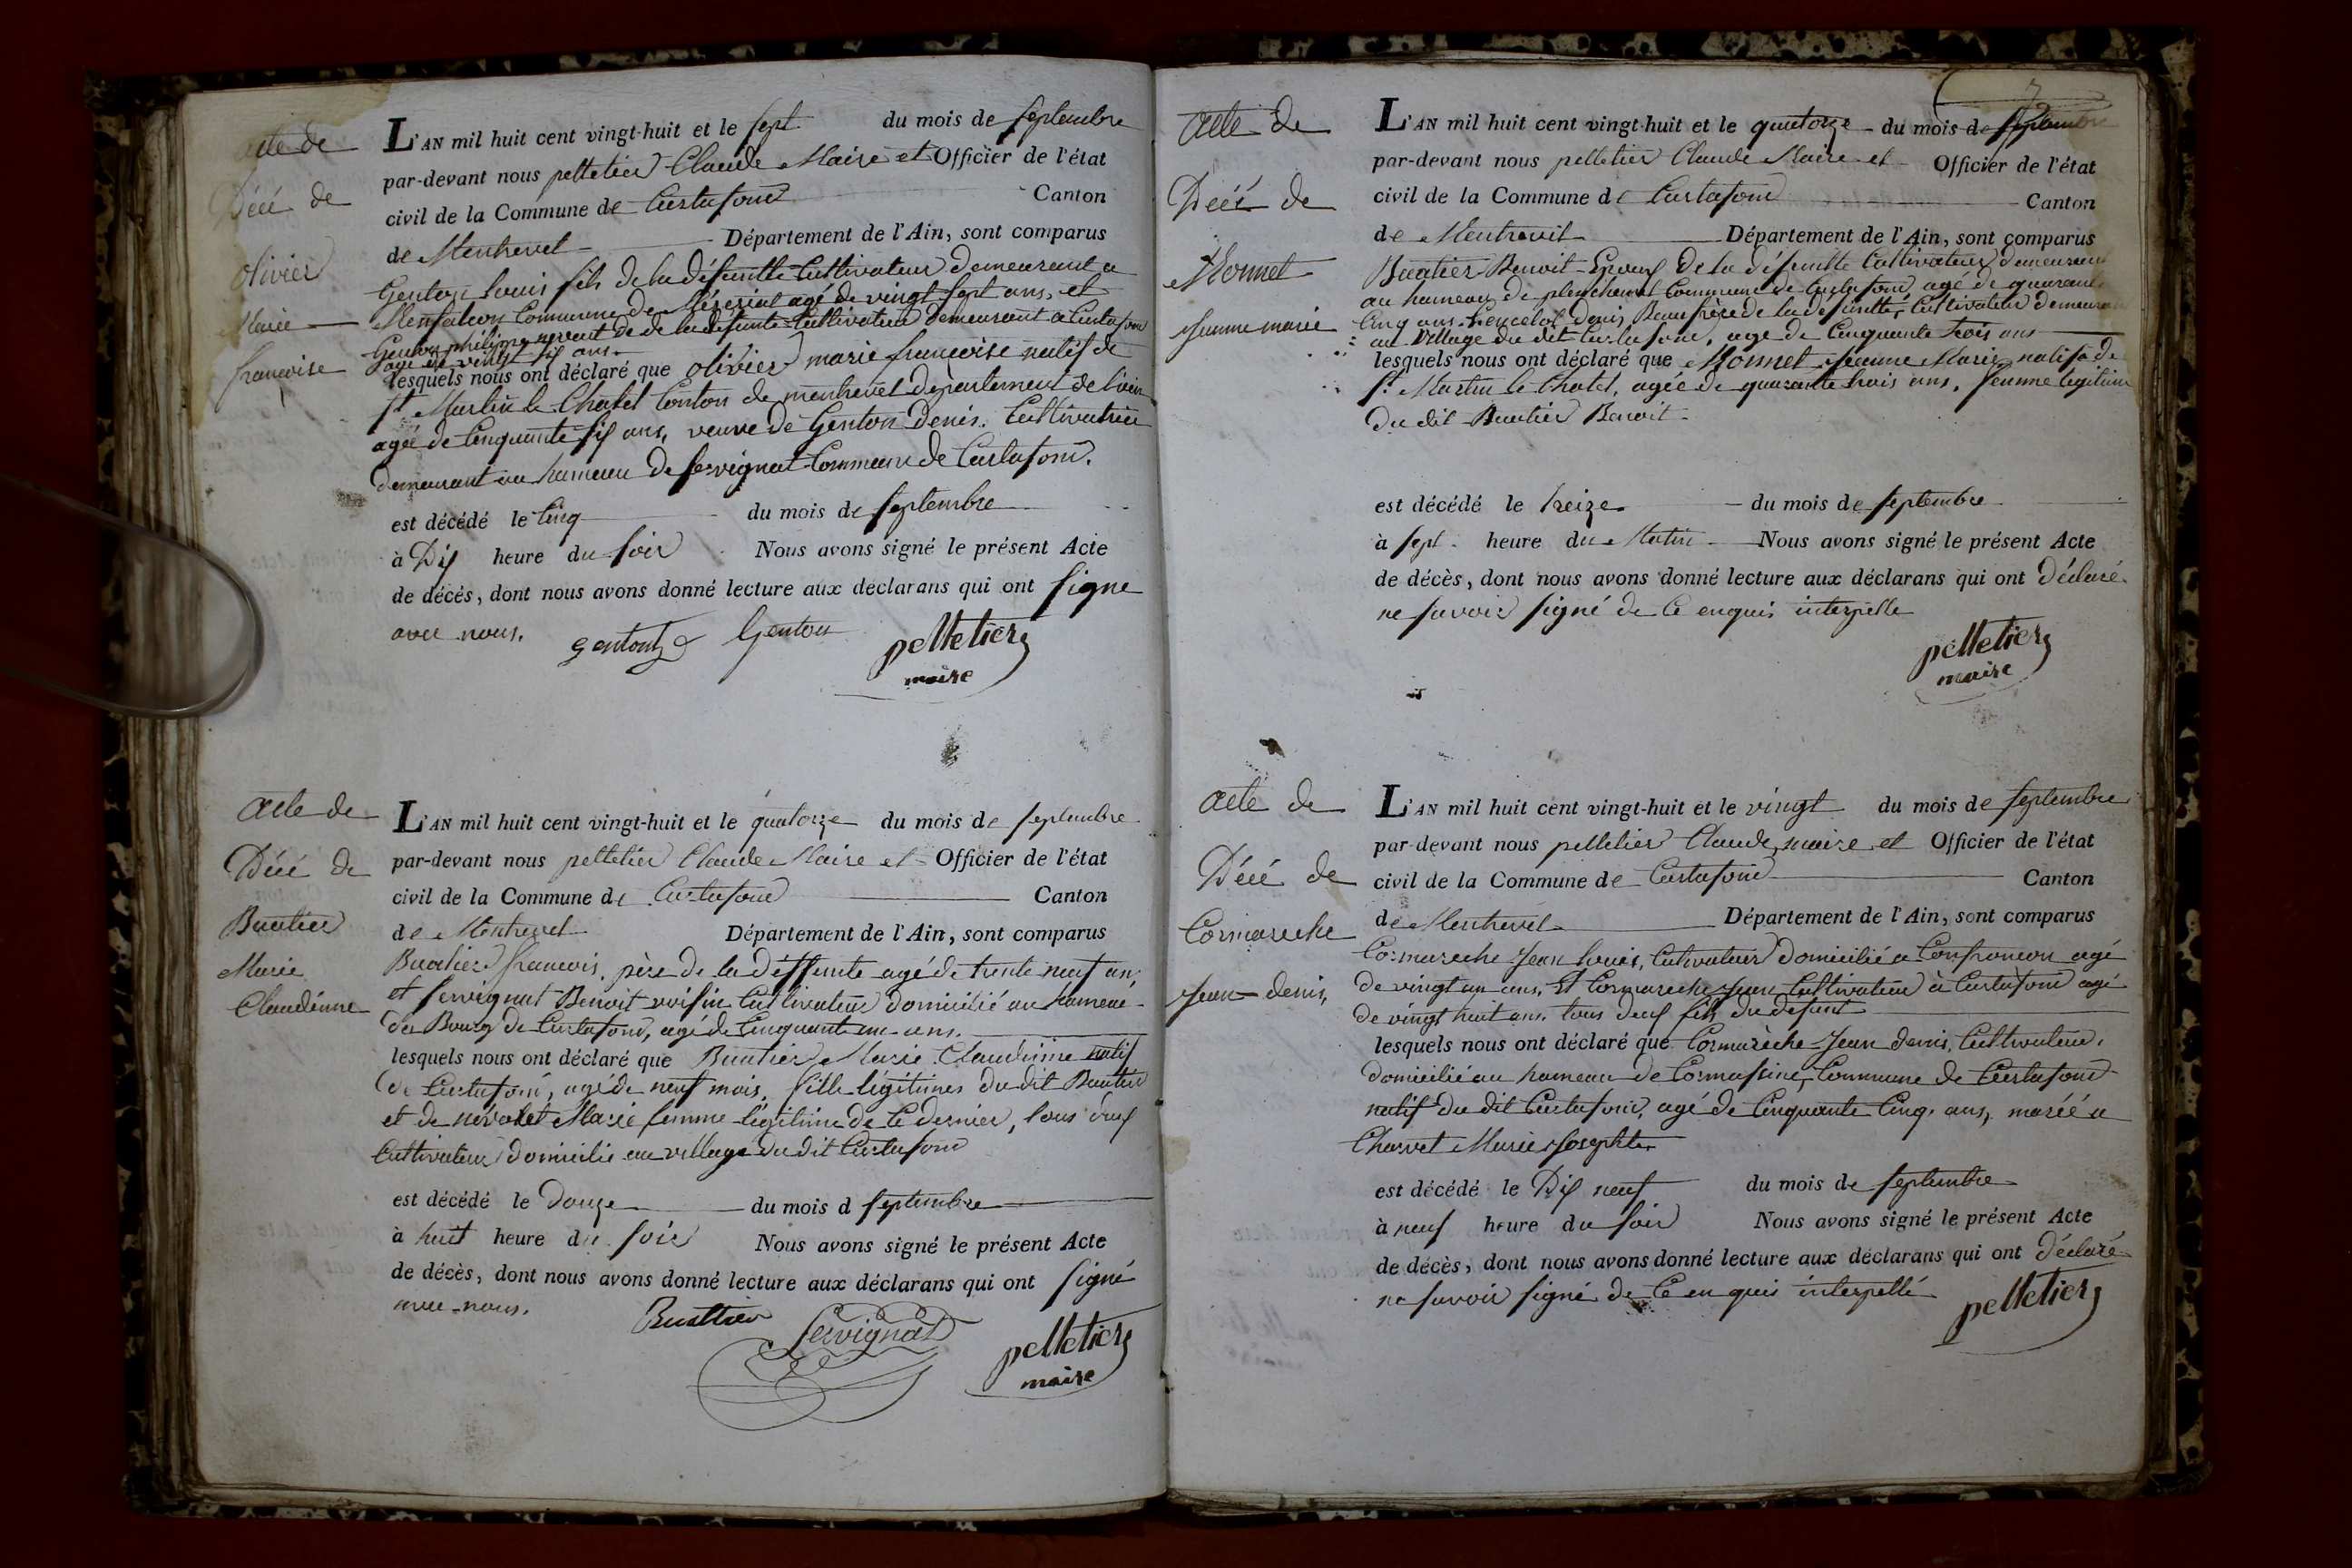 acte de
Décé de
olivier
Marie
francoise
L'AN mil huit cent vingt-huit et le sept du mois de septembre
par-devant nous pelletier Claude Maire et Officier de l'état
civil de la Commune de Curtafond Canton
de Montrevel Département de l'Ain, sont comparus
Genton Louis fils de la défunte Cultivateur demeurant a
Monfalcon Commune de agé de vingt sept ans, et
Genton philippe de la defunte Cultivateur demeurant a Curtafond
agé de vingt six ans.
lesquels nous ont déclaré que olivier marie francoise natif de
St Martin le Chatel Conton de montrevel département de l'ain
agée de Cinquante six ans, veuve de Genton Denis. Cultivatrice
demeurant au hameau de servignat Commune de Curtafond.
est décédé le Cinq du mois de septembre
à Dix heure du soir Nous avons signé le présent Acte
de décès, dont nous avons donné lecture aux déclarans qui ont signe
avec nous.
genton Genton pelletier
maire
acte de
Décé de
Buatier
Marie
Claudinne
L'AN mil huit cent vingt-huit et le quatorze du mois de septembre
par-devant nous pelletier Claude Maire et Officier de l'état
civil de la Commune de Curtafond Canton
de Montrevel Département de l'Ain, sont comparus
Buatier francois, père de la deffunte agé de trente neuf an,
et servignat Benoit voisin Cultivateur domicilié au hameau
du Bourg de Curtafond, agé de Cinquante un ans.
lesquels nous ont déclaré que Buatier Marie Claudinne natif
de Curtafond, agé de neuf mois, fille légitimes du dit Buatier
et de Marie femme légitime de Ce dernier, tous deux
Cultivateur domicilie au village du dit Curtafond
est décédé le Douze du mois d septembre
à huit heure du soir Nous avons signé le présent Acte
de décès, dont nous avons donné lecture aux déclarans qui ont signé
avec nous.
Buattier servignat pelletier
maire
7
acte de
Décé de
Monnet
Jeanne marie
L'AN mil huit cent vingt-huit et le quatorze du mois de septembre
par-devant nous pelletier Claude Maire et Officier de l'état
civil de la Commune de Curtafond Canton
de Montrevel Département de l'Ain, sont comparus
Buatier Benoit Epoux de la défunte Cultivateur demeurant
au hameau de Commune de Curtafond agé de quarante
Cinq ans. Denis Beaufrère de la defunte, Cultivateur demeurant
au Village du dit Curtafond, age de Cinquante trois ans
lesquels nous ont déclaré que Monnet Jeanne Marie, natif de
St Martin le Chatel, agée de quarante trois ans, femme legitime
du dit Buatier Benoit
est décédé le treize du mois de septembre
à sept heure du Matin Nous avons signé le présent Acte
de décès, dont nous avons donné lecture aux déclarans qui ont déclaré
ne savoir signé de Ce enquis interpelle
pelletier
maire
acte de
Décé de
Cormareche
Jean denis,
L'AN mil huit cent vingt-huit et le vingt du mois de septembre
par-devant nous pelletier Claude, maire et Officier de l'état
civil de la Commune de Curtafond Canton
de Montrevel Département de l'Ain, sont comparus
Cormareche Jean Louis, Cultivateur domicilié a Confrancon agé
de vingt un ans, Et Cormareche Jean Cultivateur à Curtafond agé
de vingt huit ans. tous deux fils du defunt
lesquels nous ont déclaré que Cormarèche Jean Denis, Cultivateur,
domicilié au hameau de Commune de Curtafond
natif du dit Curtafond, agé de Cinquante Cinq ans, marée a
Charvet Marie Josephte
est décédé le Dix neuf du mois de septembre
à neuf heure du soir Nous avons signé le présent Acte
de decès, dont nous avons donné lecture aux déclarans qui ont déclaré
ne savoir signé de Ce en quis interpellé
pelletier